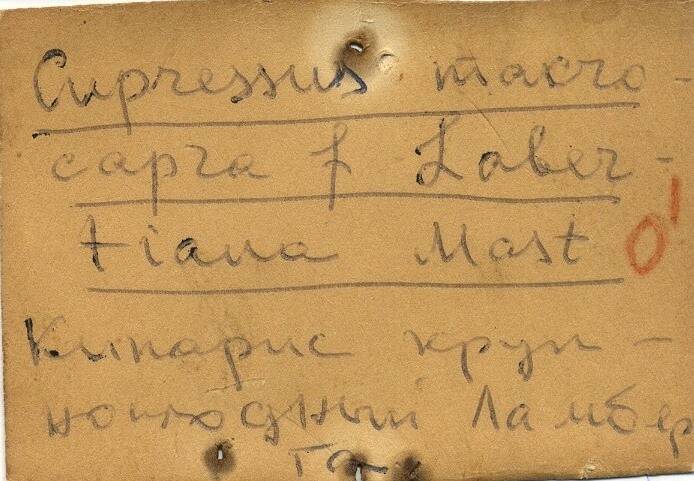 Cupressus macro-
carpa f Laber-
tiana Mast O'
Кипарис круп-
ноплодный Ламбер
та